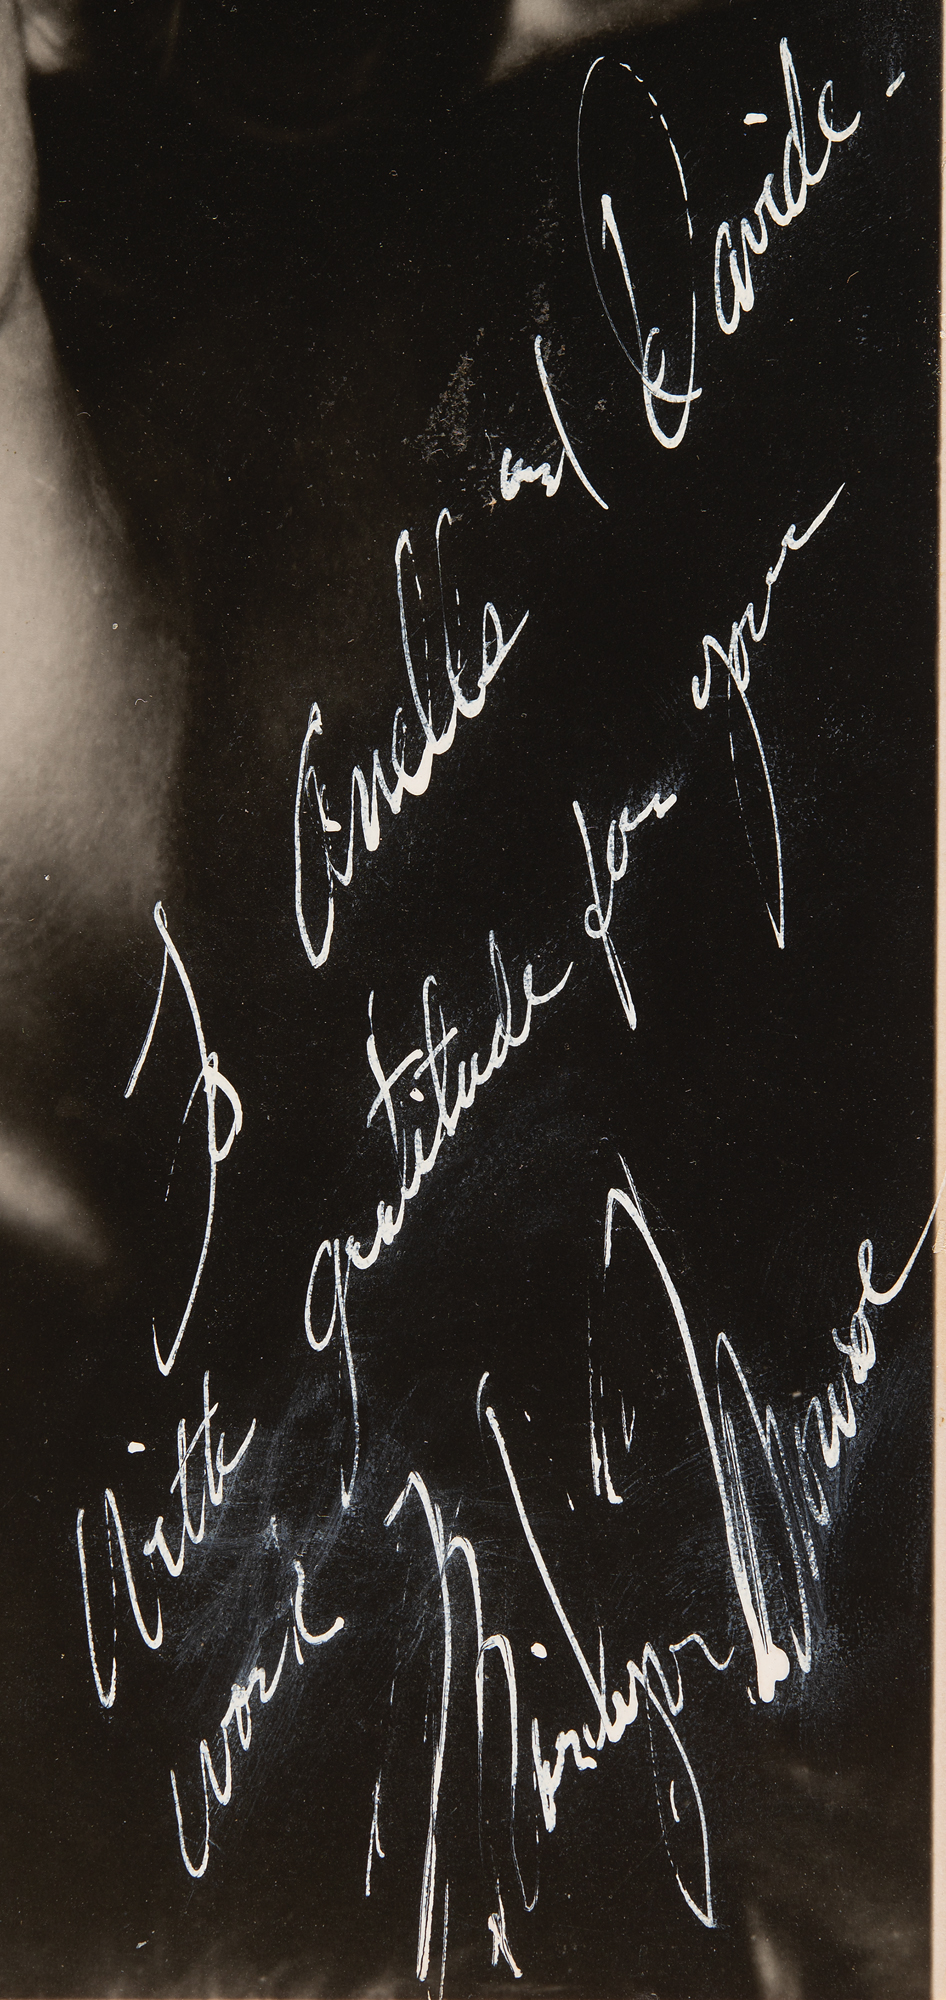 To Amelia and Davide -
With gratitude for your
work
Marilyn Monroe